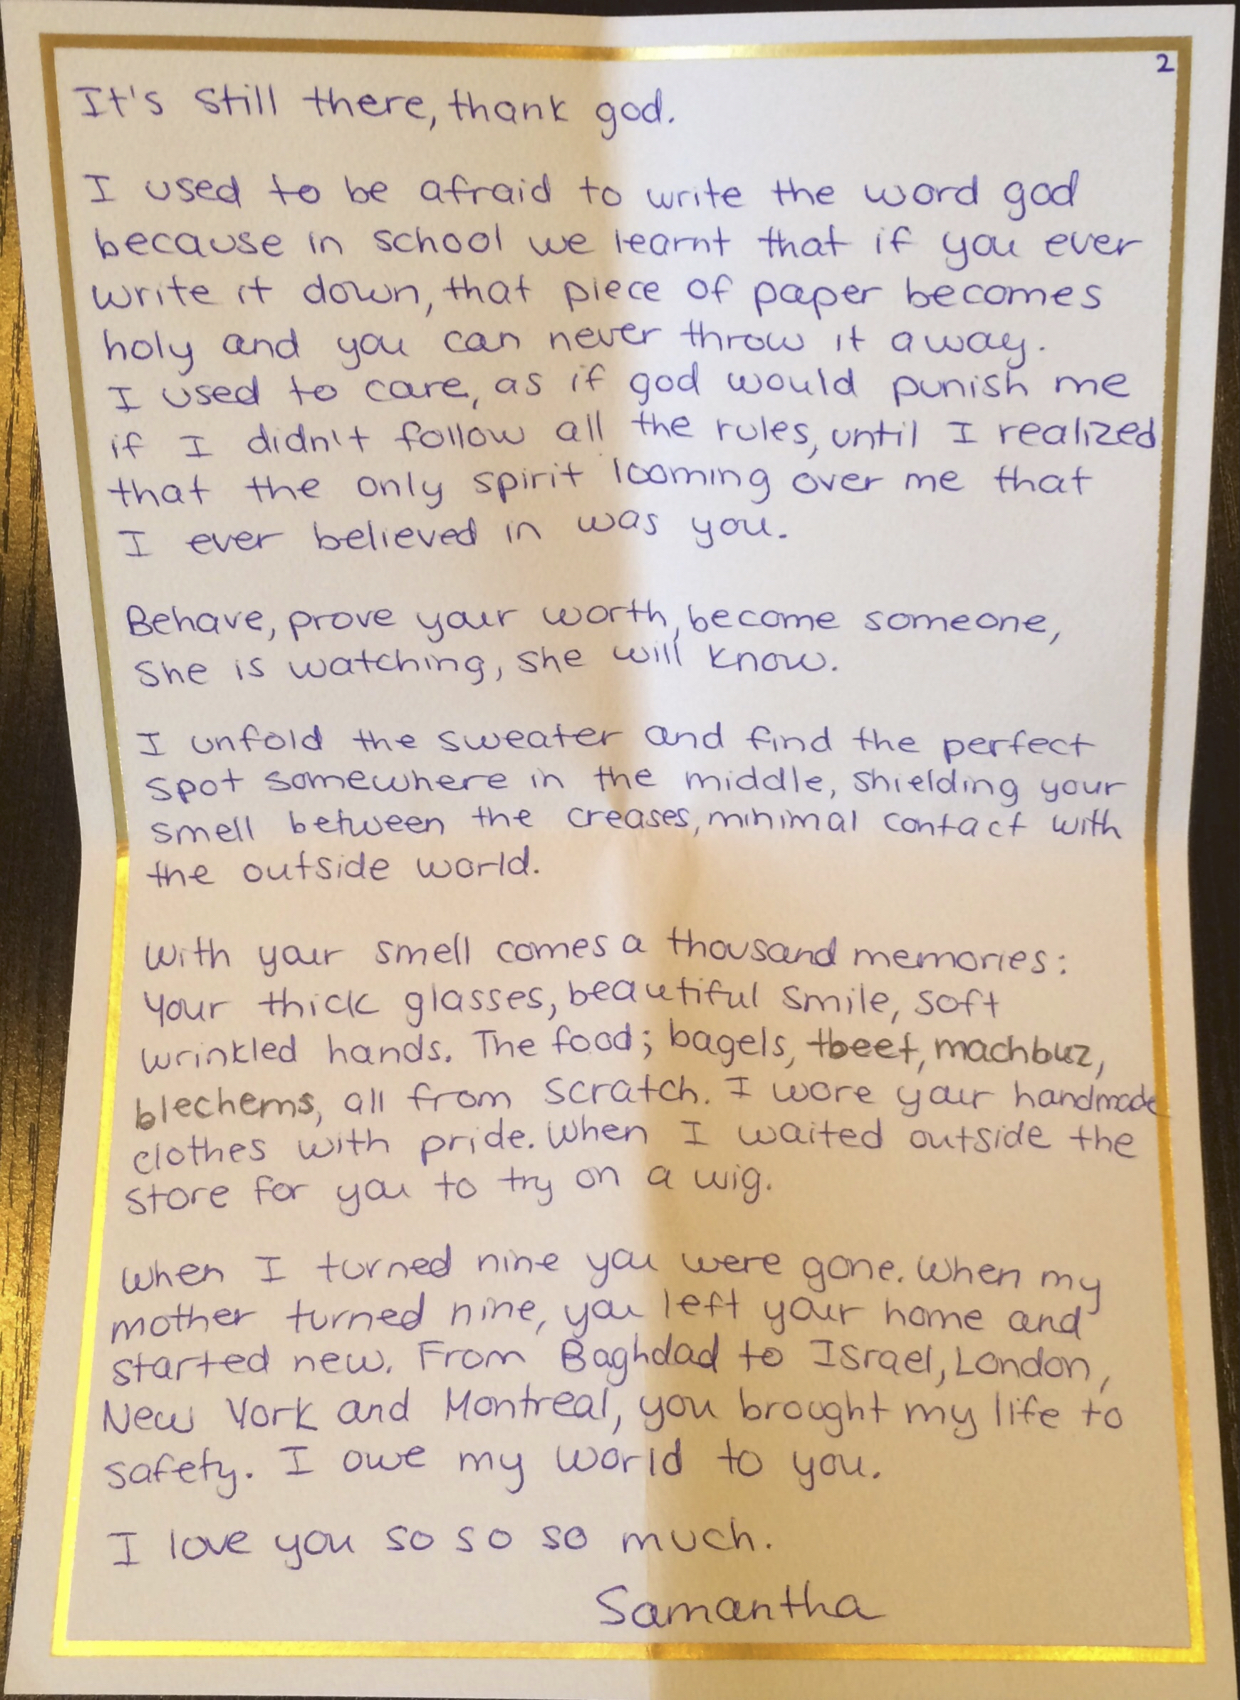 2
It's still there, thank god.
I used to be afraid to write the word god
because in school we learnt that if you ever
write it down, that piece of paper becomes
holy and you can never throw it away.
I used to care, as if god would punish me
if I didn't follow all the rules, until I realized
that the only spirit looming over me that
I ever believed in was you.
Behave, prove your worth, become someone,
She is watching, she will know.
I unfold the sweater and find the perfect
spot somewhere in the middle, shielding your
smell between the creases, minimal contact with
the outside world.
With your smell comes a thousand memories:
Your thick glasses, beautiful smile, soft
wrinkled hands. The food; bagels, tbeet, machbuz,
blechems, all from scratch. I wore your handmade
clothes with pride. When I waited outside the
store for you to try on a wig.
When I turned nine you were gone. When my
mother turned nine, you left your home and
started new. From Baghdad to Israel, London,
New York and Montreal, you brought my life to
safety. I owe my world to you.
I love you so so so much.
Samantha